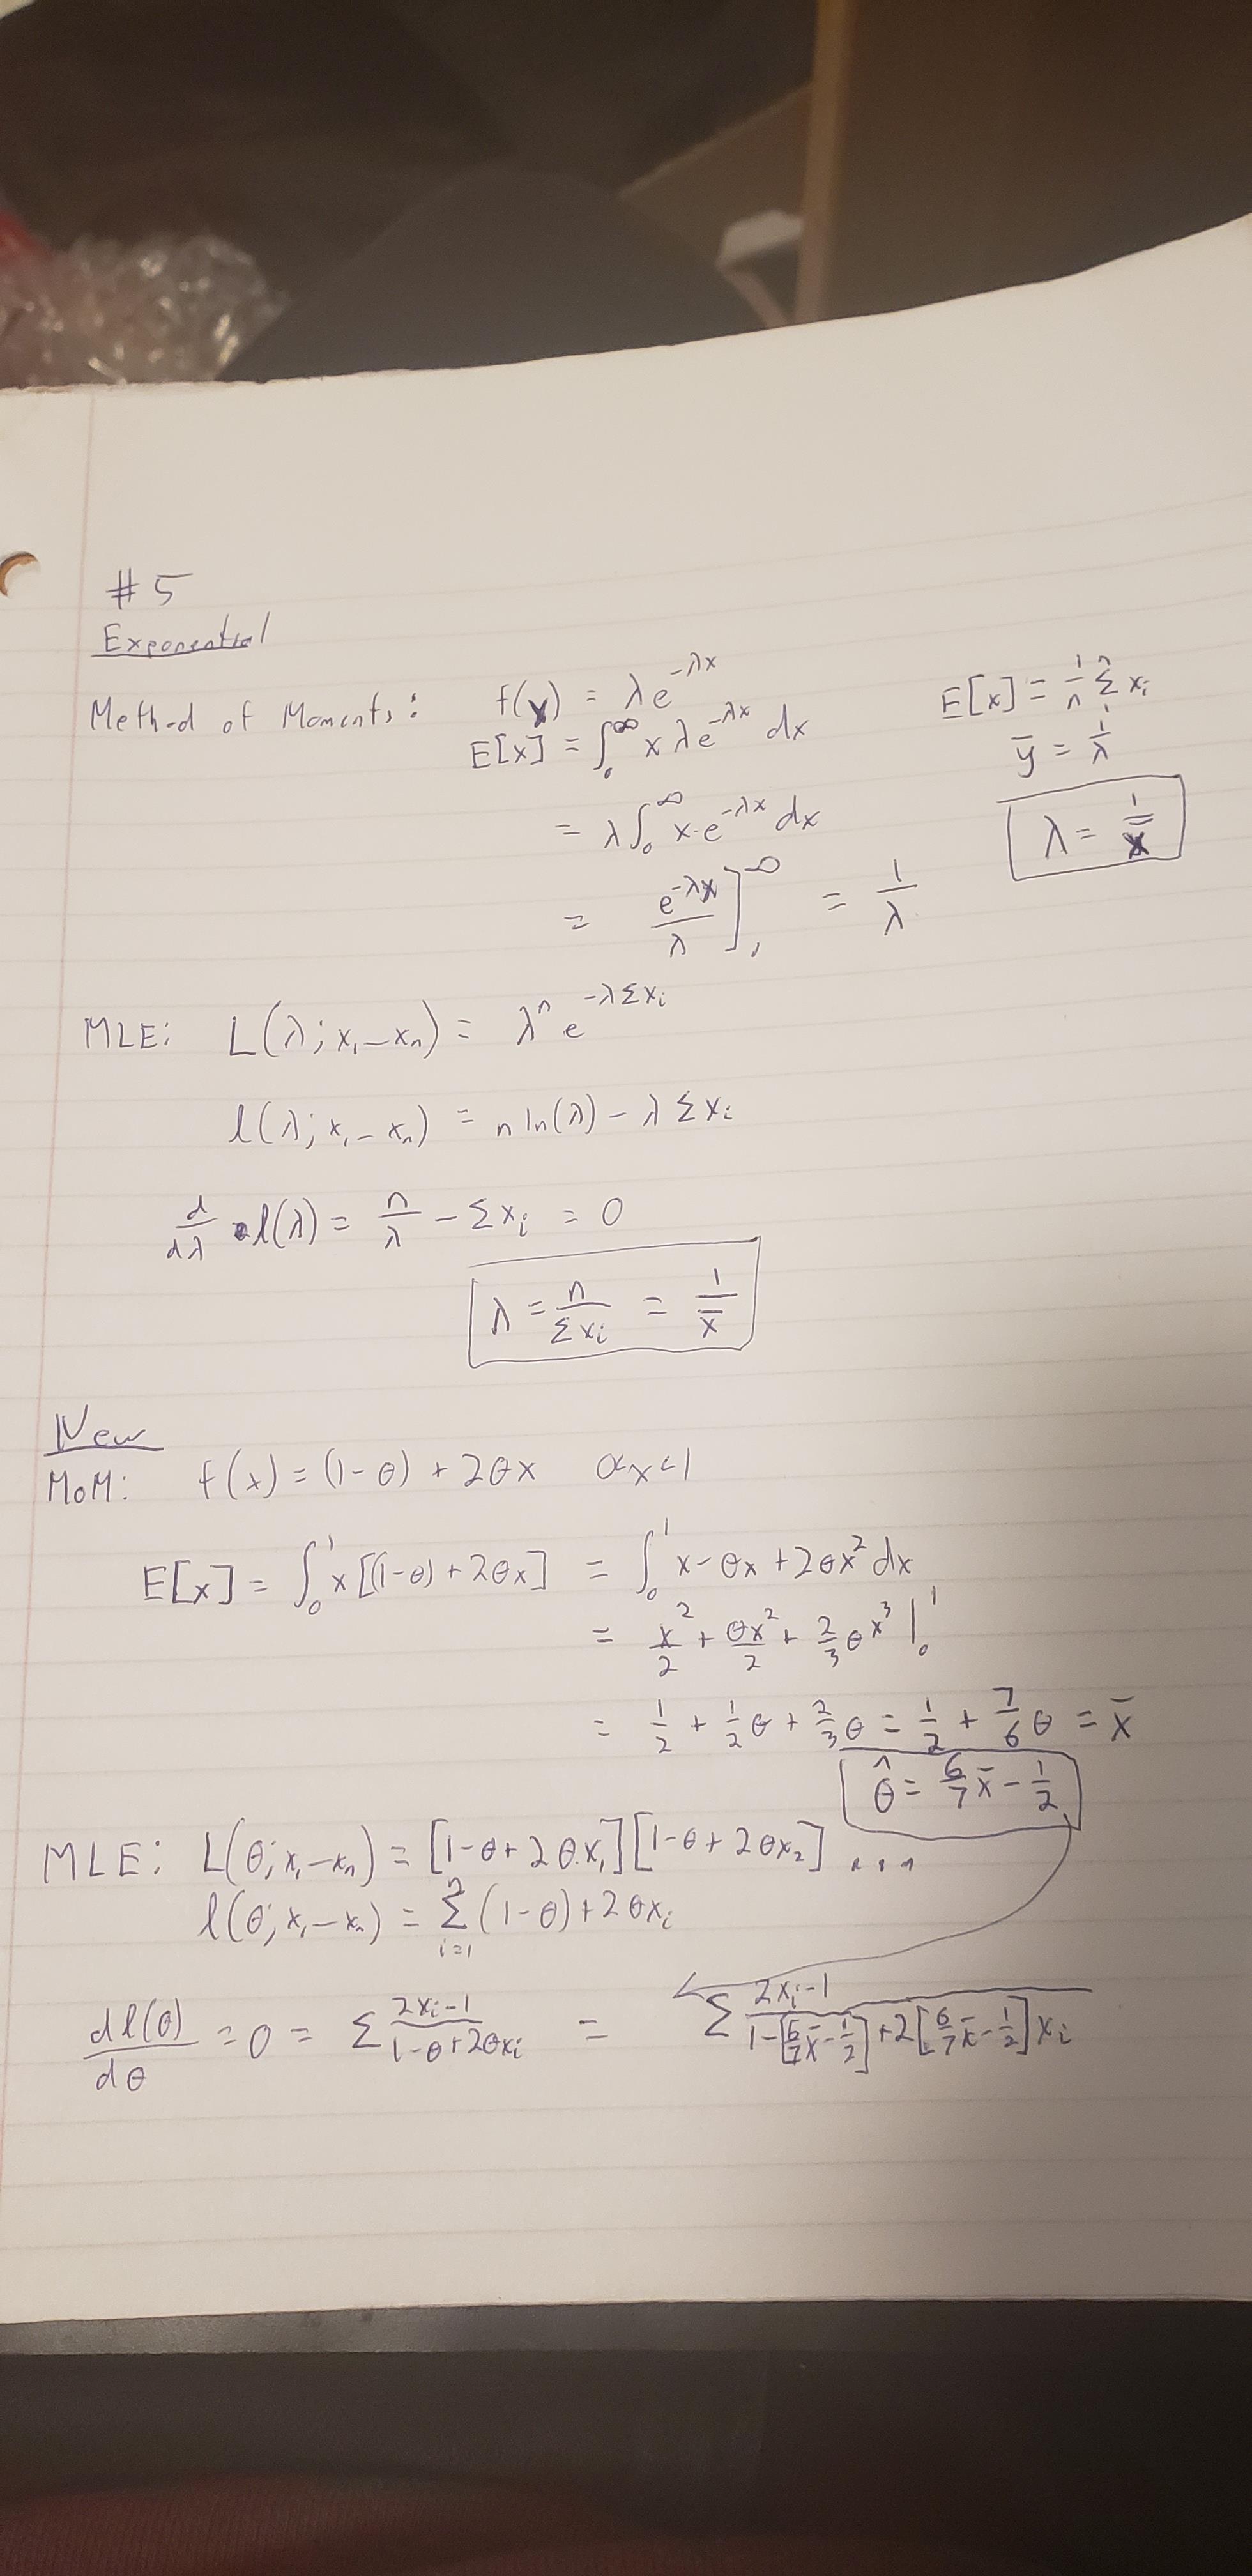 #5
Exponential
Method of Moments: f(x) = λe^{-λx}
E[x] = ∫_0^∞ xλe^{-λx} dx
E[x] = 1/n Σ_1^n x_i
= λ∫_0^∞ x·e^{-λx} dx
ȳ = 1/λ
= e^{-λx}/λ ]^∞ = 1/λ
λ = 1/x̄
MLE: L(λ; x_1–x_n) = λ^n e^{-λΣx_i}
l(λ; x_1–x_n) = n ln(λ) - λΣx_i
d/dλ l(λ) = n/λ - Σx_i = 0
λ = n/Σx_i = 1/x̄
New
MoM: f(x) = (1-θ) + 2θx 0<x<1
E[x] = ∫_0^1 x[(1-θ) + 2θx] = ∫_0^1 x-θx + 2θx^2 dx
= x^2/2 + θx^2/2 + 2/3 θx^3 |_0^1
= 1/2 + 1/2 θ + 2/3 θ = 1/2 + 7/6 θ = x̄
θ̂ = 6/7 x̄ - 1/2
MLE: L(θ; x_1–x_n) = [1-θ + 2θx_1][1-θ + 2θx_2] ...
l(θ; x_1–x_n) = Σ_{i=1}^n (1-θ) + 2θx_i
dl(θ)/dθ = 0 = Σ (2x_i-1)/(1-θ+2θx_i) = Σ (2x_i-1)/(1-[6/7 x̄ - 1/2] + 2[6/7 x̄ - 1/2]x_i)